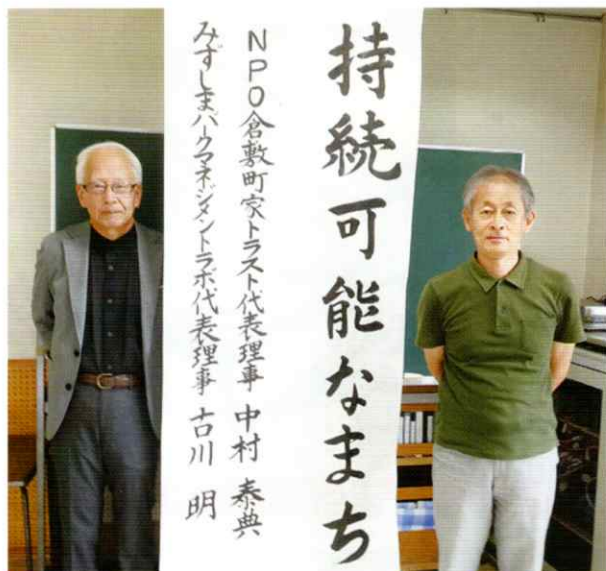 持続可能なまち
NPO倉敷町家トラスト代表理事 中村 泰典
みずしまパークマネジメントラボ代表理事 古川 明